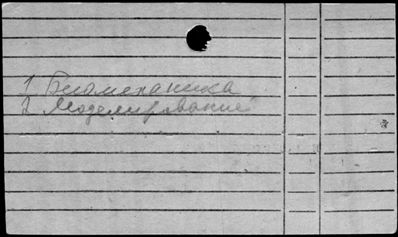 1 Биомеханика
2 Моделирование